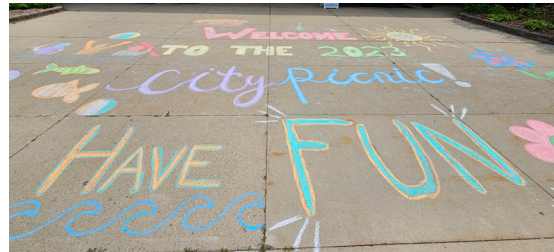 WELCOME
TO THE 2023
City Picnic!
HAVE FUN